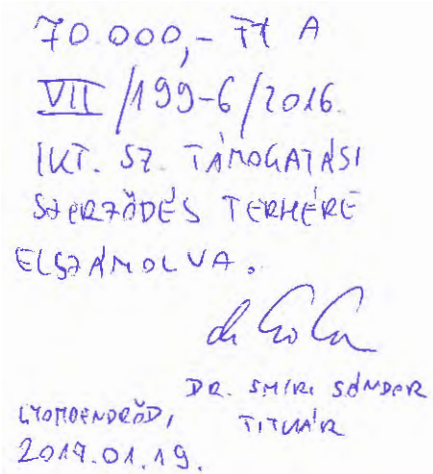 70.000,- Ft A
VII/199-6/2016.
IKT. SZ. TÁMOGATÁSI
SZERZŐDÉS TERHÉRE
ELSZÁMOLVA.
DR. SMIRI SÁNDOR
TITKÁR
GYOMAENDRŐD,
2017.01.19.